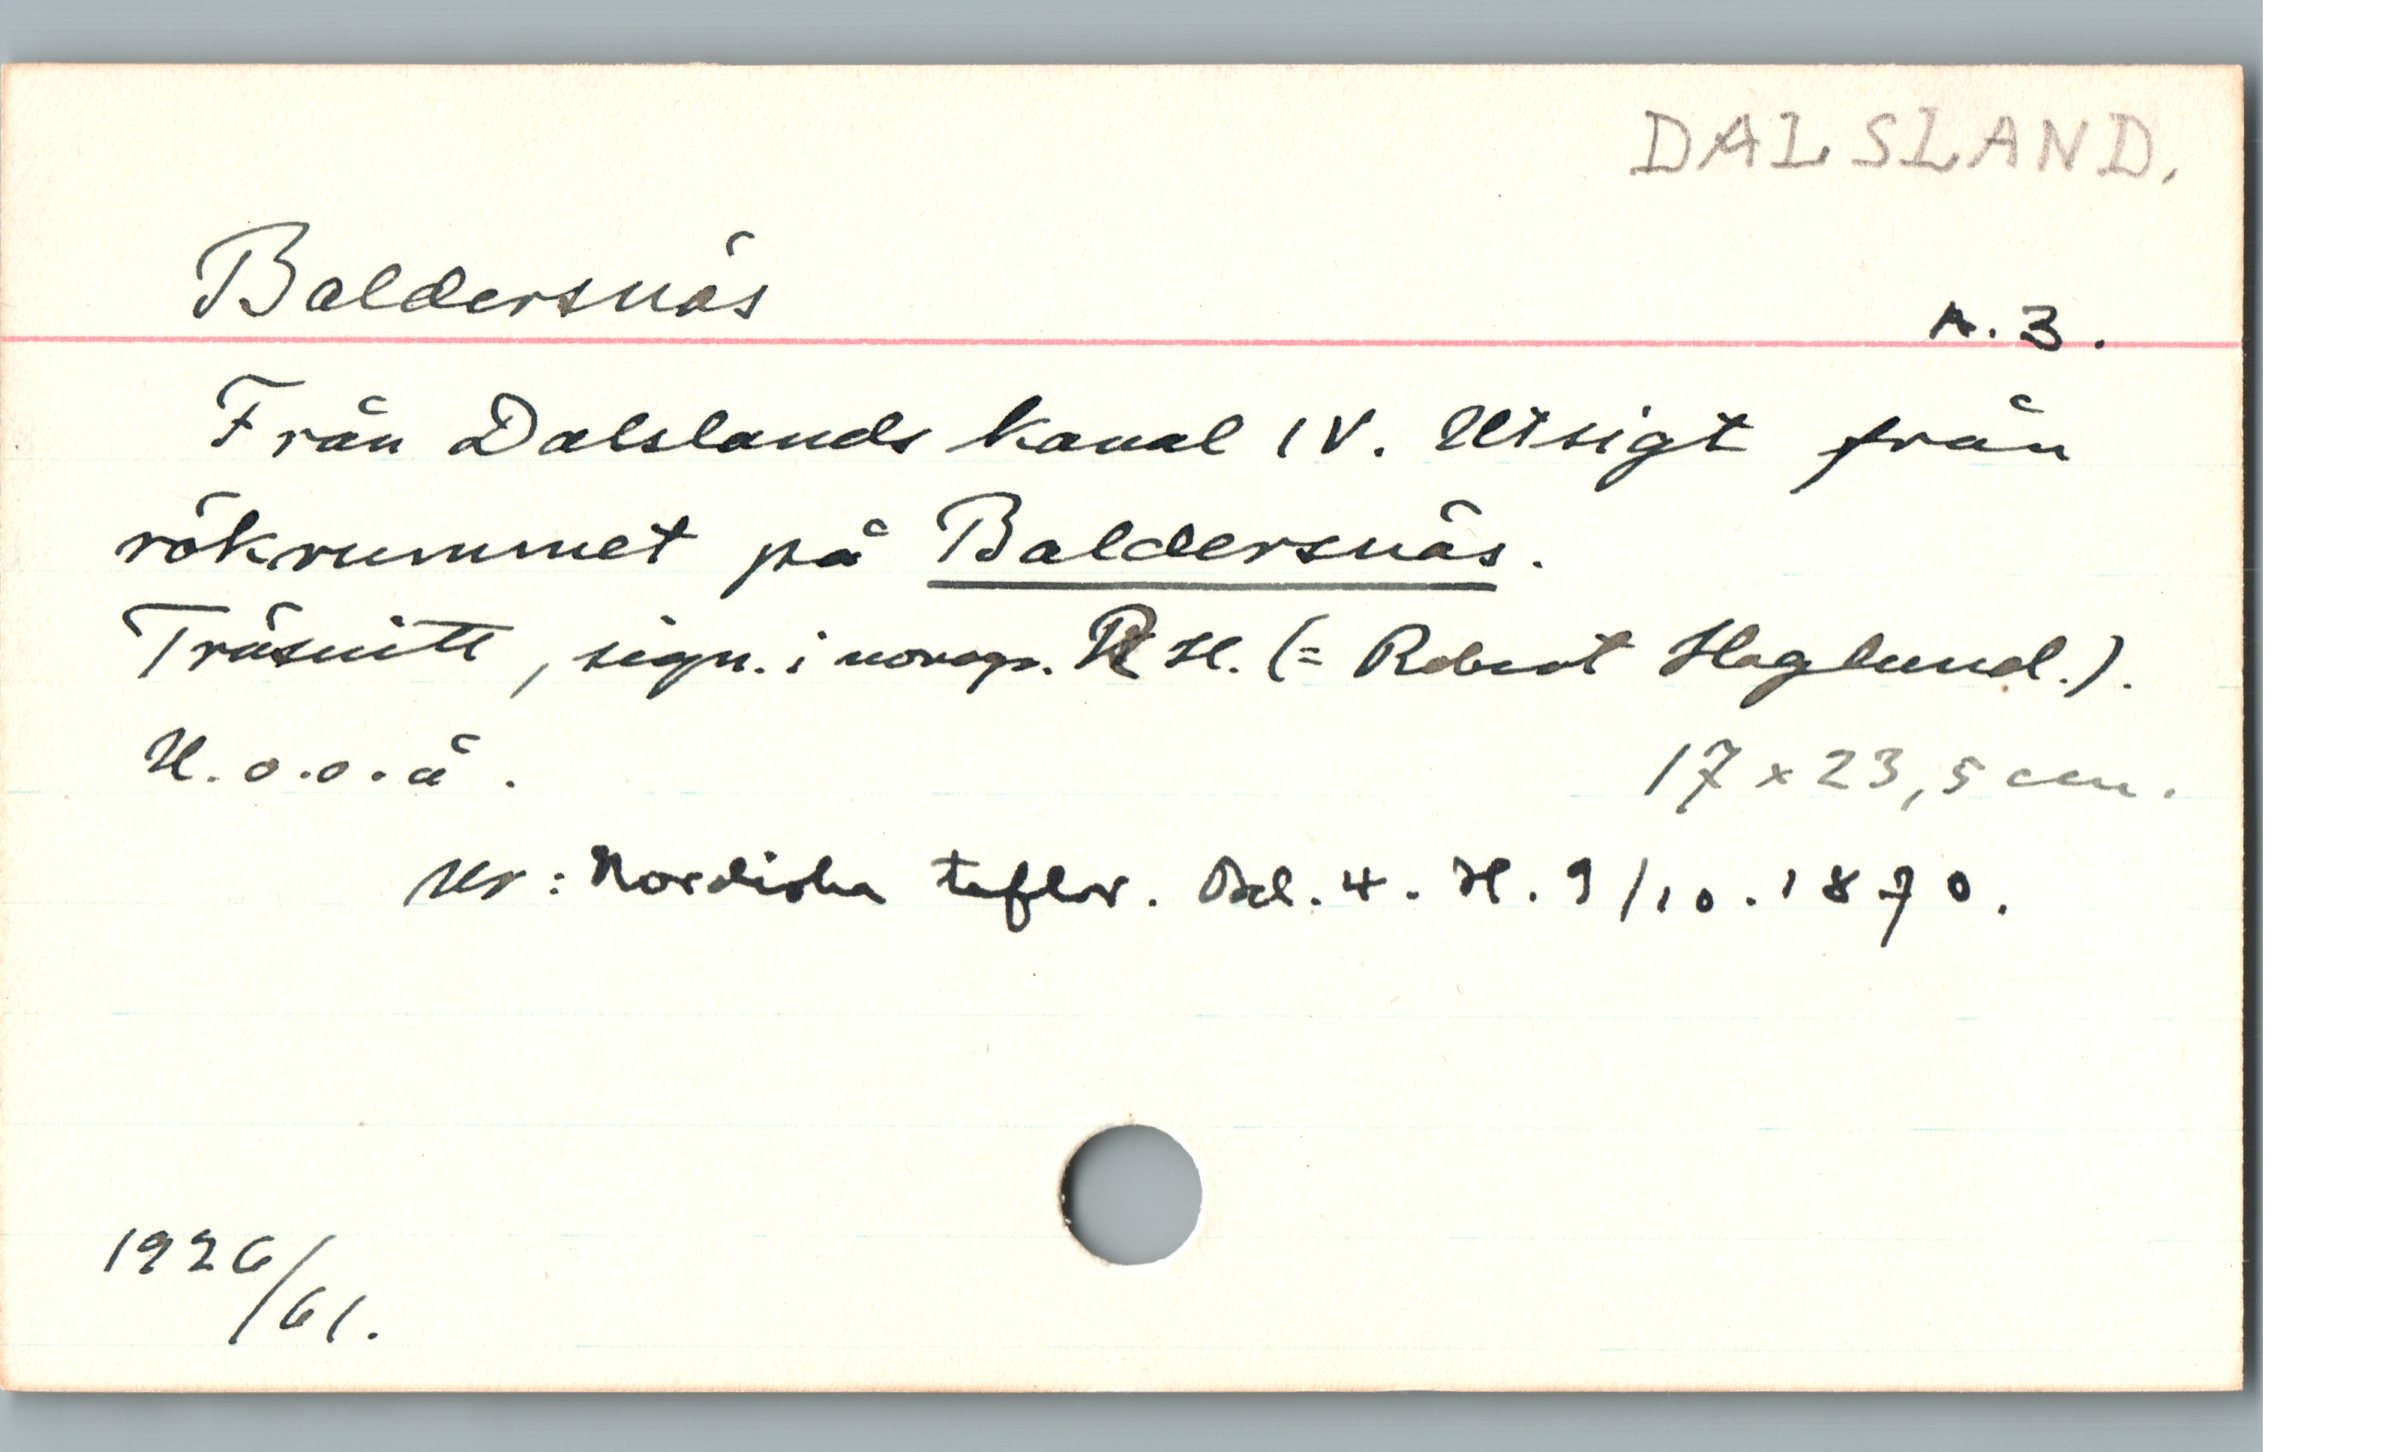 DALSLAND.
Baldersnäs
A. 3.
Från Dalslands kanal IV. Utsigt från
rökrummet på Baldersnäs.
Träsnitt, sign. i nongr. R H. (= Robert Haglund.).
U. o. o. å.
17 x 23,5 cm.
Ur: Nordiska taflor. Bd. 4. H. 9/10. 1870.
1926/61.